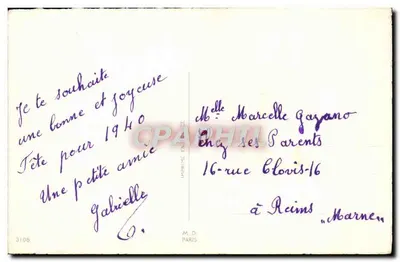 Je te souhaite
une bonne et joyeuse
Fête pour 1940
Une petite amie
Gabrielle
Melle Marcelle Gazano
Chez ses Parents
16-rue Clovis-16
à Reims "Marne"
CPAPHIL
M.D.
PARIS